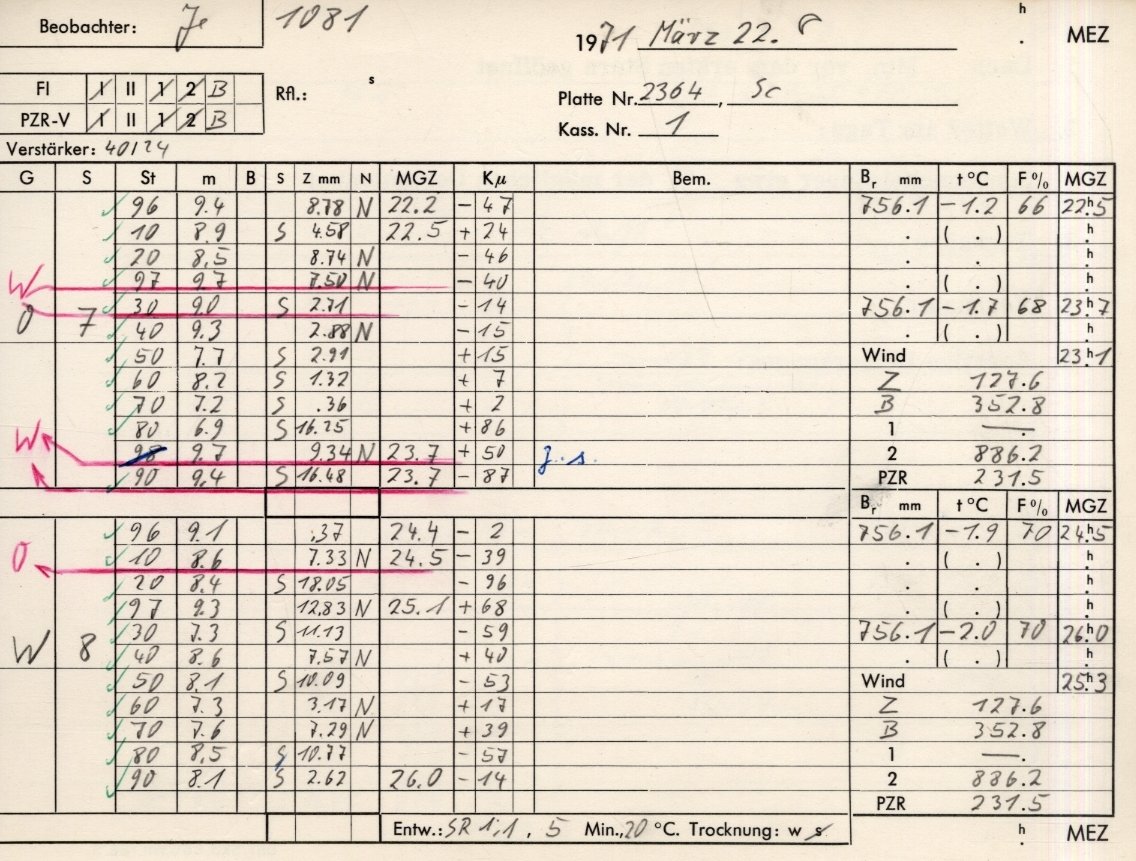 Beobachter: Je 1081 h
1971 März 22. MEZ
FI I II 1 2 B Rfl.: s
PZR-V I II 1 2 B Platte Nr. 2364, Sc
Kass. Nr. 1
Verstärker: 40/24
G S St m B S Z mm N MGZ Kμ Bem. Br mm t °C F % MGZ
96 9.4 8.78 N 22.2 - 47 756.1 -1.2 66 22h.5
10 8.9 S 4.58 22.5 + 24 . ( . ) h.
20 8.5 8.74 N - 46 . . h.
W 97 9.7 7.50 N - 40 . ( . ) h.
O 7 30 9.0 S 2.71 - 14 756.1 -1.7 68 23h.7
40 9.3 2.88 N - 15 . ( . ) h.
50 7.7 S 2.91 + 15 Wind 23h.1
60 8.2 S 1.32 + 7 Z 127.6
70 7.2 S .36 + 2 B 352.8
W 80 6.9 S 16.25 + 86 1 —.
98 9.7 9.34 N 23.7 + 50 z.s. 2 886.2
90 9.4 S 16.48 23.7 - 87 PZR 231.5
Br mm t °C F % MGZ
96 9.1 .37 24.4 - 2 756.1 -1.9 70 24h.5
O 10 8.6 7.33 N 24.5 - 39 . ( . ) h.
20 8.4 S 18.05 - 96 . . h.
97 9.3 12.83 N 25.1 + 68 . ( . ) h.
W 8 30 7.3 S 11.13 - 59 756.1 -2.0 70 26h.0
40 8.6 7.57 N + 40 . ( . ) h.
50 8.1 S 10.09 - 53 Wind 25h.3
60 7.3 3.17 N + 17 Z 127.6
70 7.6 7.29 N + 39 B 352.8
80 8.5 S 10.77 - 57 1 —.
90 8.1 S 2.62 26.0 - 14 2 886.2
PZR 231.5
Entw.: SR 1:1, 5 Min., 20 °C. Trocknung: w s h. MEZ